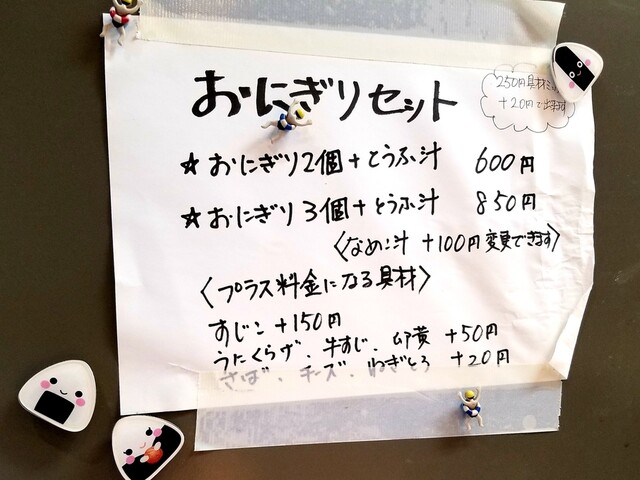 おにぎりセット
250円具材ミックス
+20円で出来ます
☆おにぎり2個+とうふ汁 600円
☆おにぎり3個+とうふ汁 850円
〈なめこ汁 +100円変更できます〉
〈プラス料金になる具材〉
すじこ+150円
うにくらげ、牛すじ、卵黄 +50円
さば、チーズ、ねぎとろ +20円